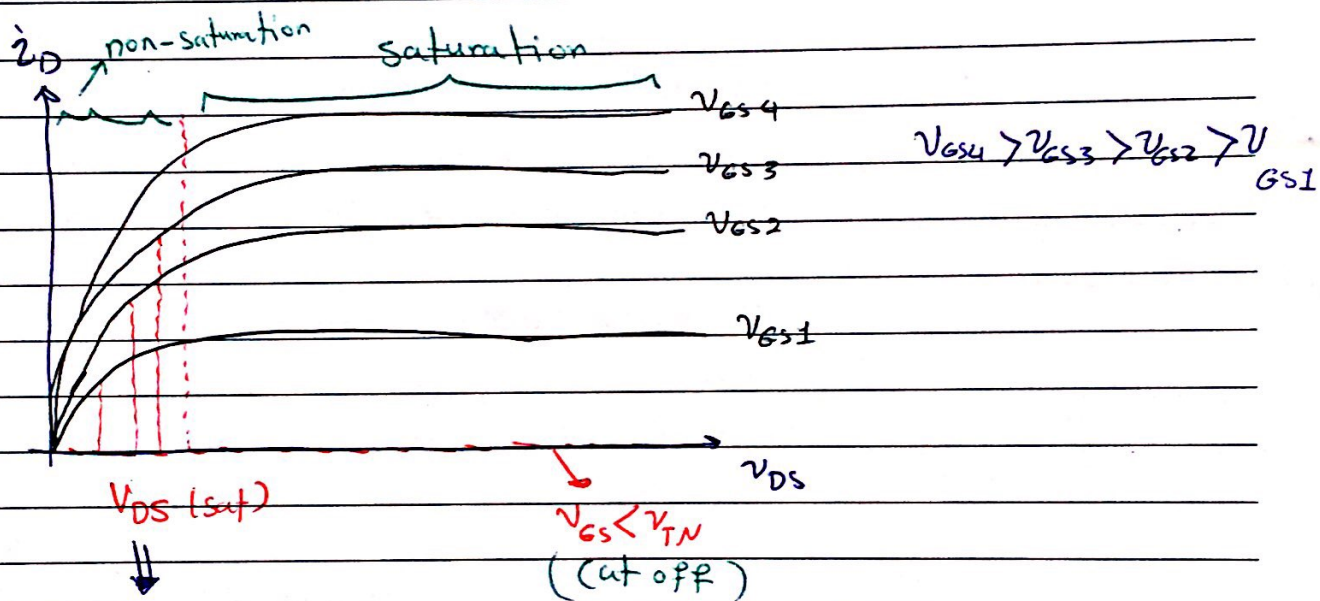 i_D
non-saturation
saturation
V_GS4
V_GS3
V_GS2
V_GS1
V_GS4 > V_GS3 > V_GS2 > V_GS1
V_DS
V_DS (sat)
V_GS < V_TN
(Cut off)